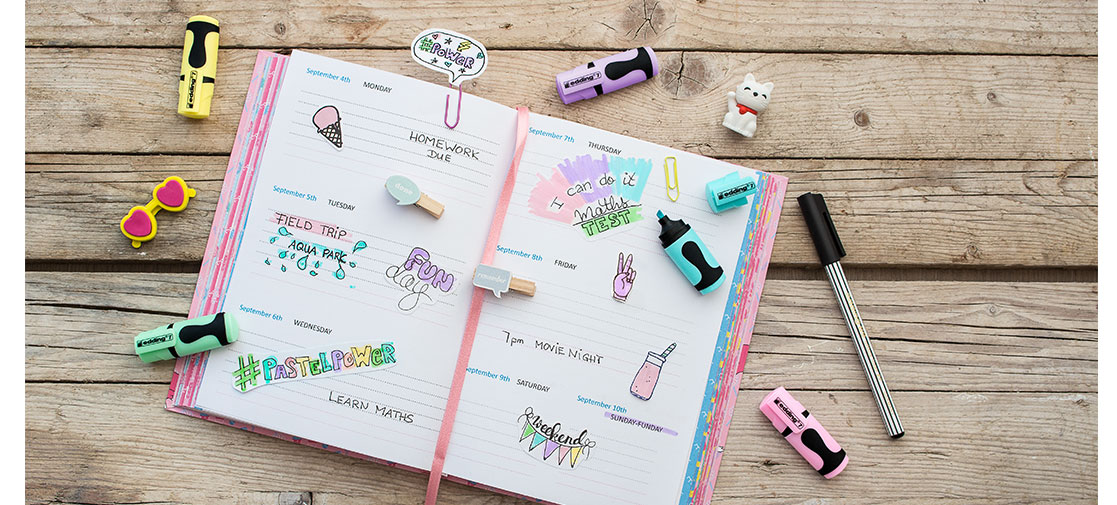 #POWER
September 4th
MONDAY
HOMEWORK
DUE
September 5th
TUESDAY
FIELD TRIP
AQUA PARK
FUN
day
September 6th
WEDNESDAY
#PASTELPOWER
LEARN MATHS
September 7th
THURSDAY
I can do it
Maths
TEST
September 8th
FRIDAY
remember
7pm MOVIE NIGHT
September 9th
SATURDAY
weekend
September 10th
SUNDAY-FUNDAY
edding 7
edding 7
edding 7
edding
edding 7